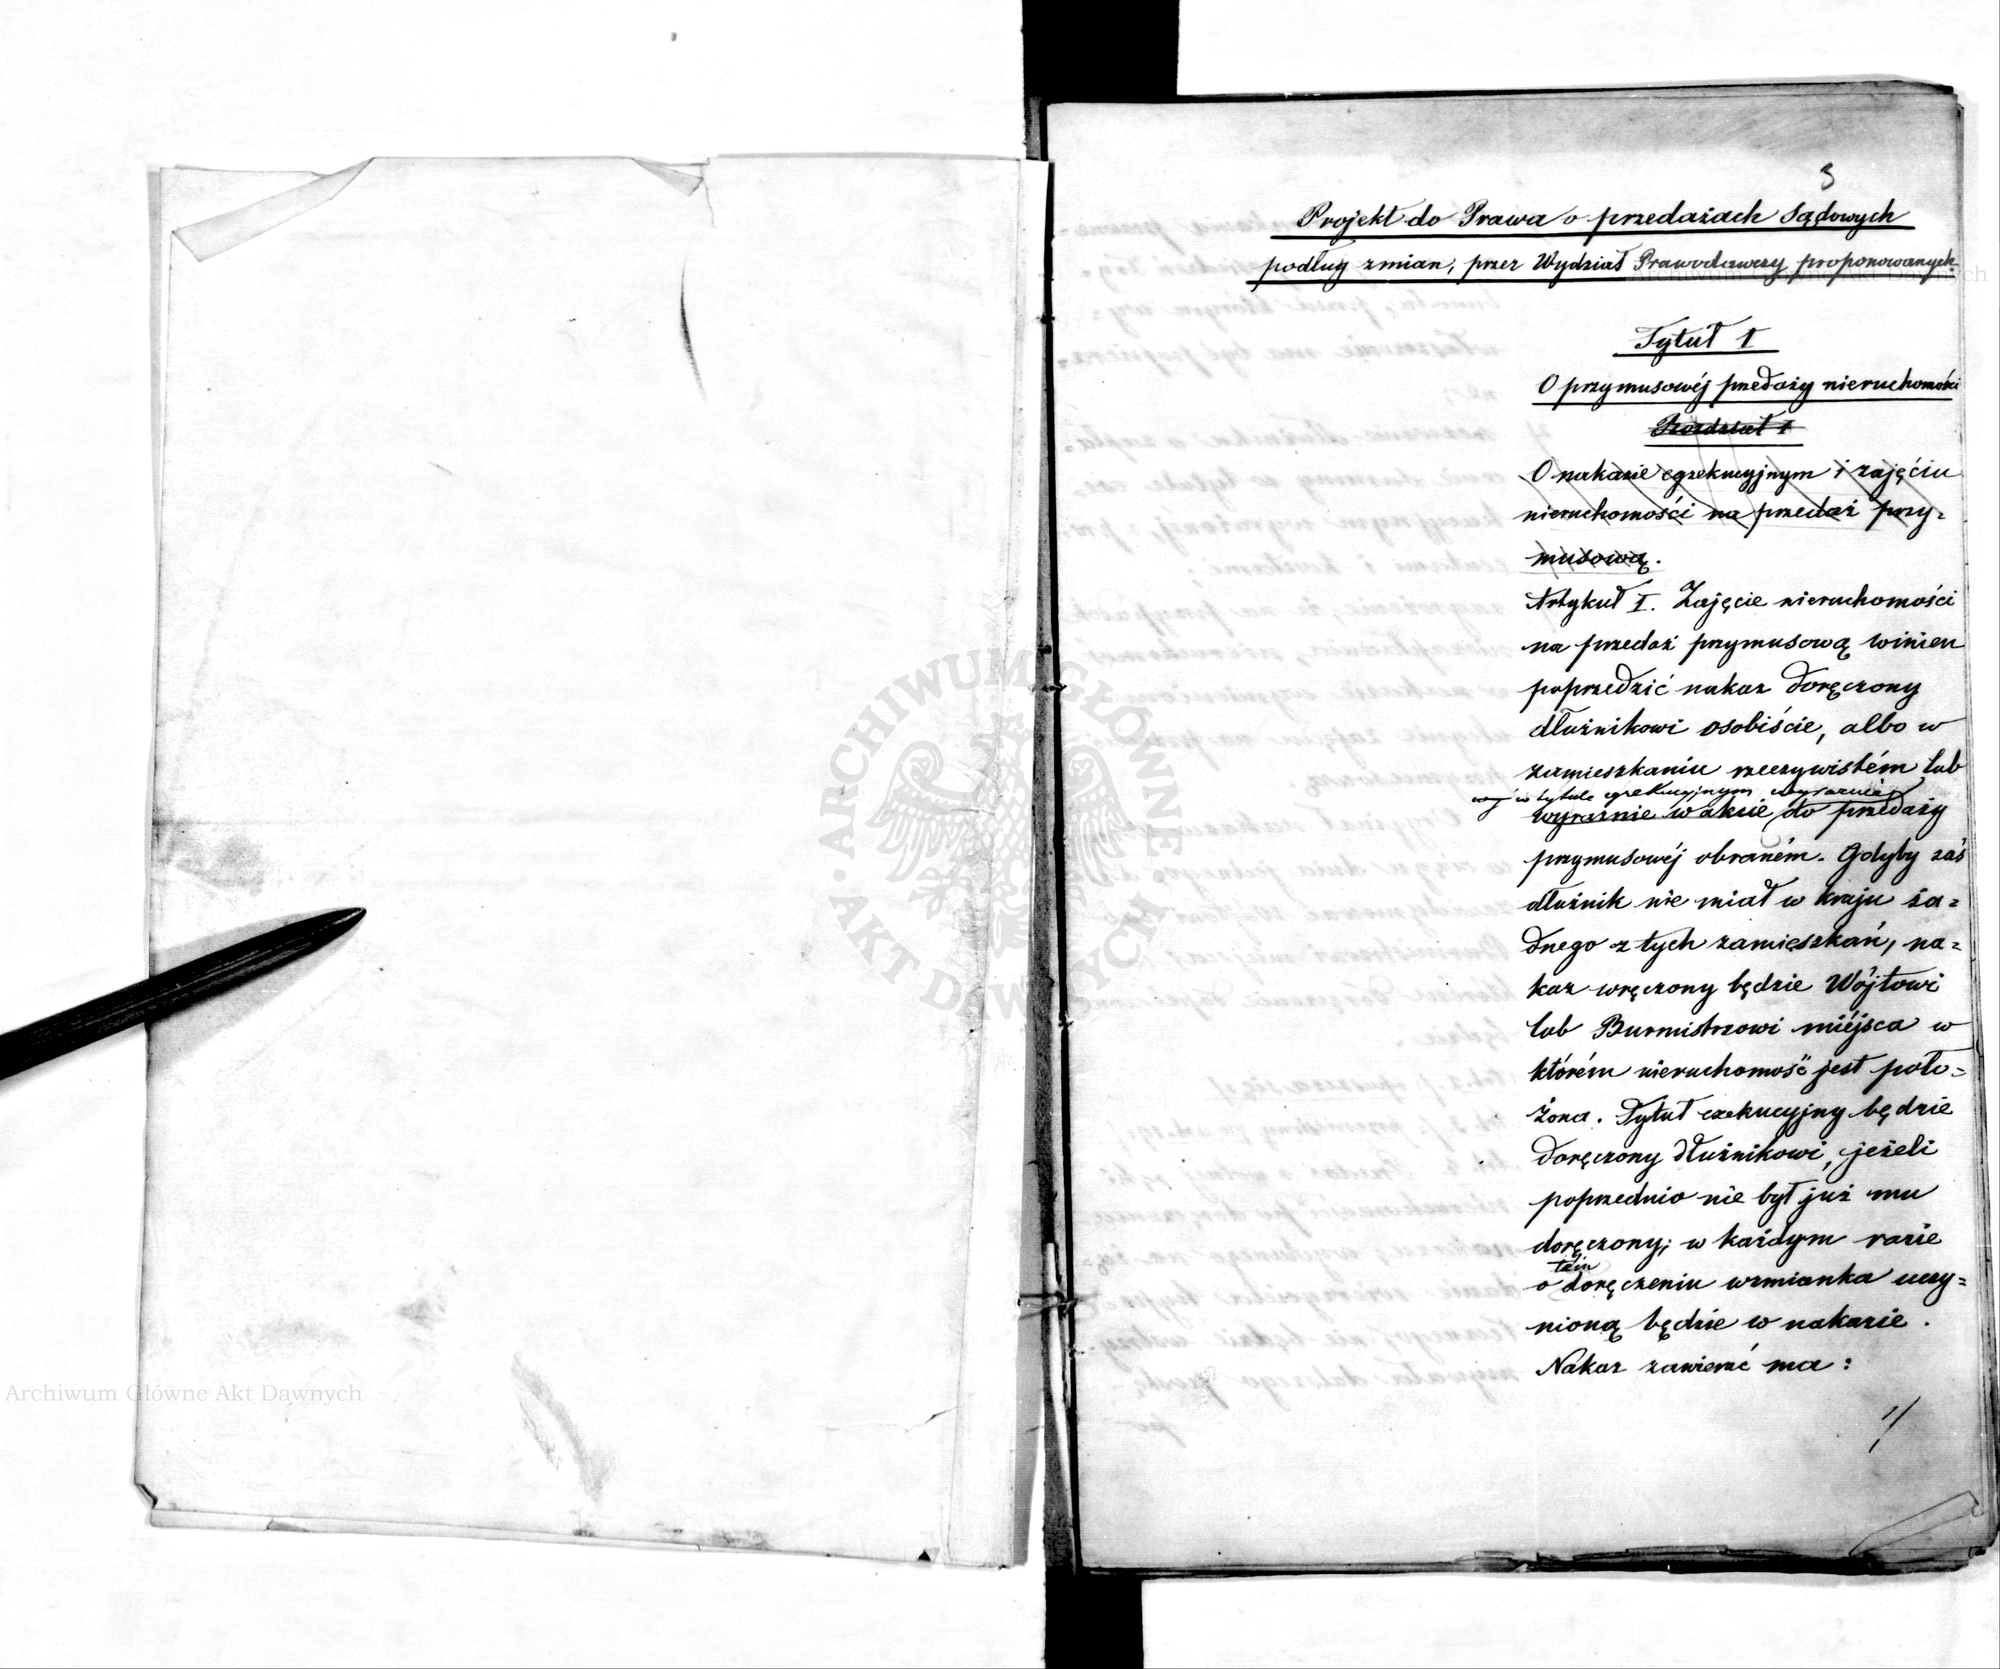 3
Projekt do Prawa o przedażach Sądowych
podług zmian, przez Wydział Prawodawczy proponowanych
Tytuł I
O przymusowéj przedaży nieruchomości
Rozdział I
O nakazie egzekucyjnym i zajęciu
nieruchomości na przedaż przy=
musową.
Artykuł I. Zajęcie nieruchomości
na przedaż przymusową winien
poprzedzić nakaz doręczony
dłużnikowi osobiście, albo w
zamieszkaniu rzeczywistém lub
w tytule egzekucyjnym wyraźnie
wyraźnie w akcie do przedaży
przymusowéj obraném. Gdyby zaś
dłużnik nie miał w kraju ża=
dnego z tych zamieszkań, na=
kaz wręczony będzie Wójtowi
lub Burmistrzowi miéjsca w
którém nieruchomość jest poło=
żona. Tytuł exekucyjny będzie
doręczony dłużnikowi, jeżeli
poprzednio nie był już mu
doręczony; w każdym razie
tém
o doręczeniu wzmianka uczy=
nioną będzie w nakazie.
Nakaz zawierać ma:
1/
ARCHIWUM GŁÓWNE AKT DAWNYCH
Archiwum Główne Akt Dawnych
Archiwum Główne Akt Dawnych